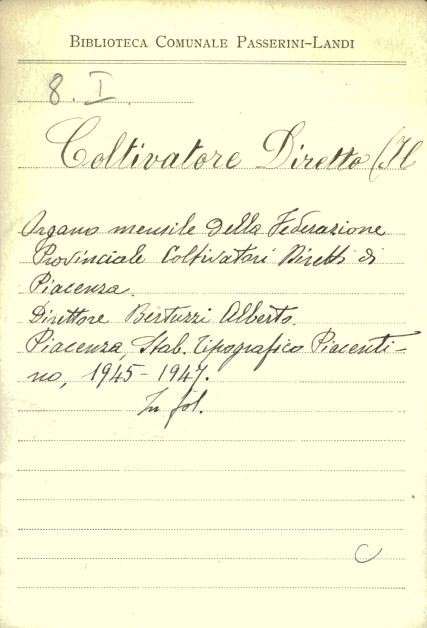 BIBLIOTECA COMUNALE PASSERINI-LANDI
8. I.
Coltivatore Diretto (Il
Organo mensile della Federazione
Provinciale Coltivatori Diretti di
Piacenza.
Direttore Bertuzzi Alberto.
Piacenza, Stab. Tipografico Piacenti-
no, 1945-1947.
In fol.
C